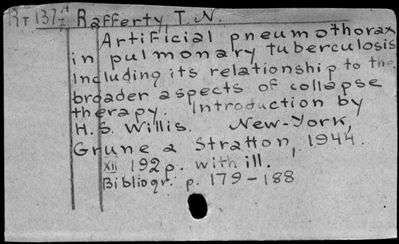 Rafferty T. N.
Artificial pneumothorax
in pulmonary tuberculosis
Including its relationship to the
broader aspects of collapse
therapy. Introduction by
H. S. Willis. New-York,
Grune a Stratton, 1944.
XII 192p. with ill.
Bibliogr. p. 179-188